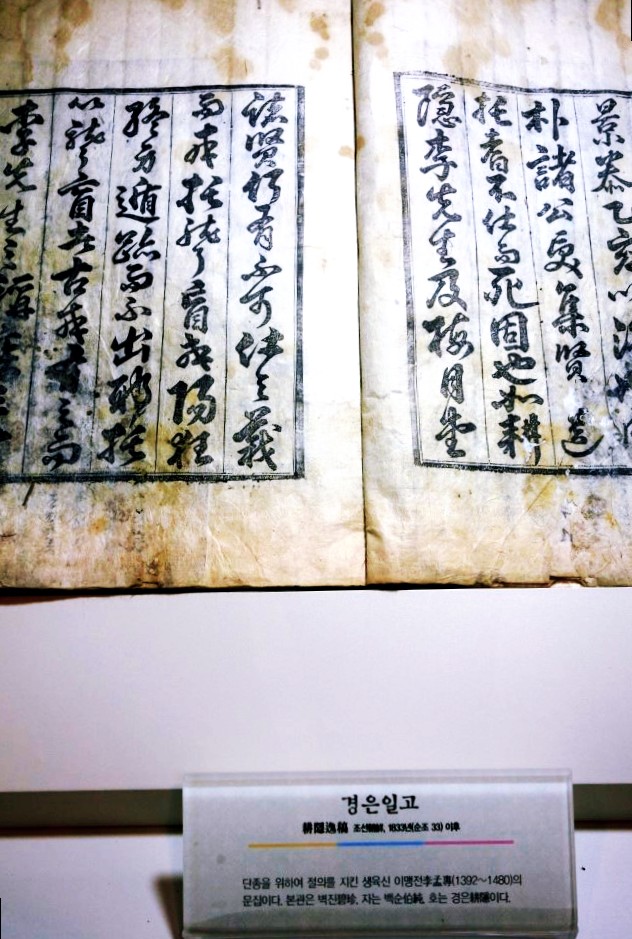 景泰乙亥以
朴諸公 集賢
托者不仕而死固也如耕
隱李先生及梅月堂
諸賢 有不可仕之義
而或托聾盲或陽狂
終身遁跡而不出 托
以聾盲者古或有之而
李先生之
경은일고
耕隱逸稿 조선朝鮮, 1833년(순조 33) 이후
단종을 위하여 절의를 지킨 생육신 이맹전李孟專(1392~1480)의
문집이다. 본관은 벽진碧珍, 자는 백순伯純, 호는 경은耕隱이다.